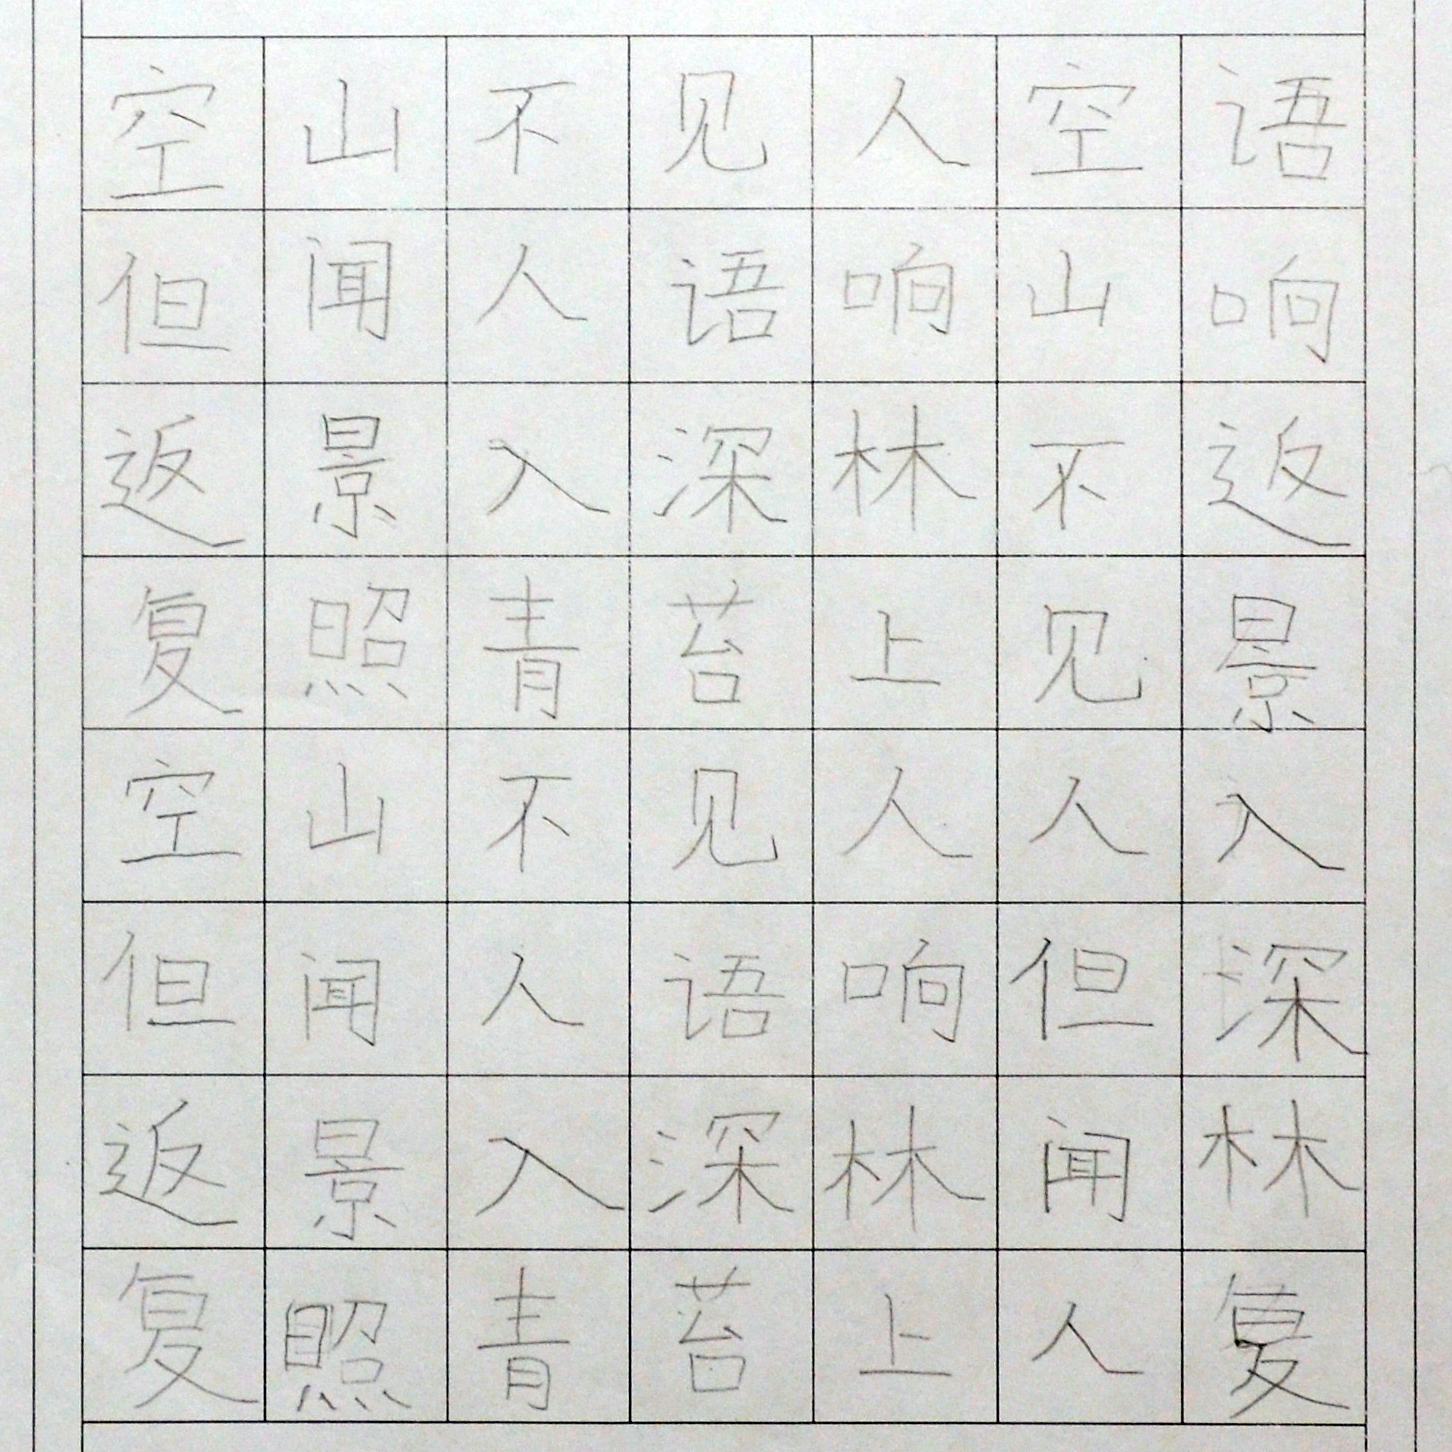 空山不见人空语
但闻人语响山响
返景入深林不返
复照青苔上见景
空山不见人人入
但闻人语响但深
返景入深林闻林
复照青苔上人复